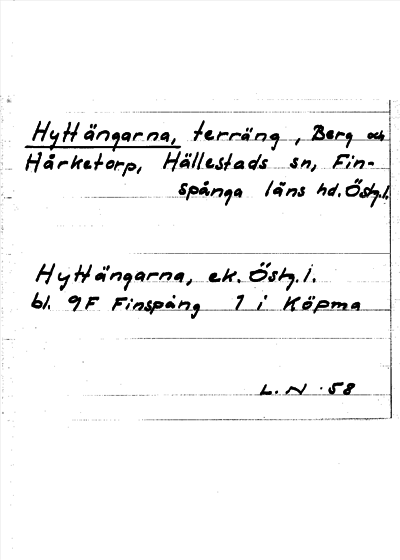 Hyttängarna, terräng, Berg och
Hårketorp, Hällestads sn, Fin-
spånga läns hd. Östg.l.
Hyttängarna, ek. Östg.l.
bl. 9F Finspång 7 i Köpma
L. N. 58